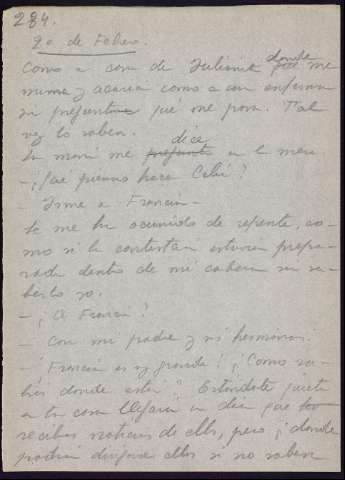 284.
20 de Febrero.
Como a casa de Julianita donde me
miman y acarician como a un enfermo
sin preguntarme qué me pasa. Tal
vez lo saben.
Su mano me dice en la mesa
— ¿Qué piensas hacer Celia?
— Irme a Francia —
Se me ha ocurrido de repente, co-
mo si la contestación estuviera prepa-
rada dentro de mi cabeza sin sa-
berlo yo.
— ¿A Francia?
— Con mi padre y mis hermanas.
— ¡Francia es muy grande! ¿Cómo sa-
bes donde están? Estándote quieta
en tu casa llegará un día que
recibas noticias de ellos, pero ¿donde
podrían dirigirse ellos si no saben